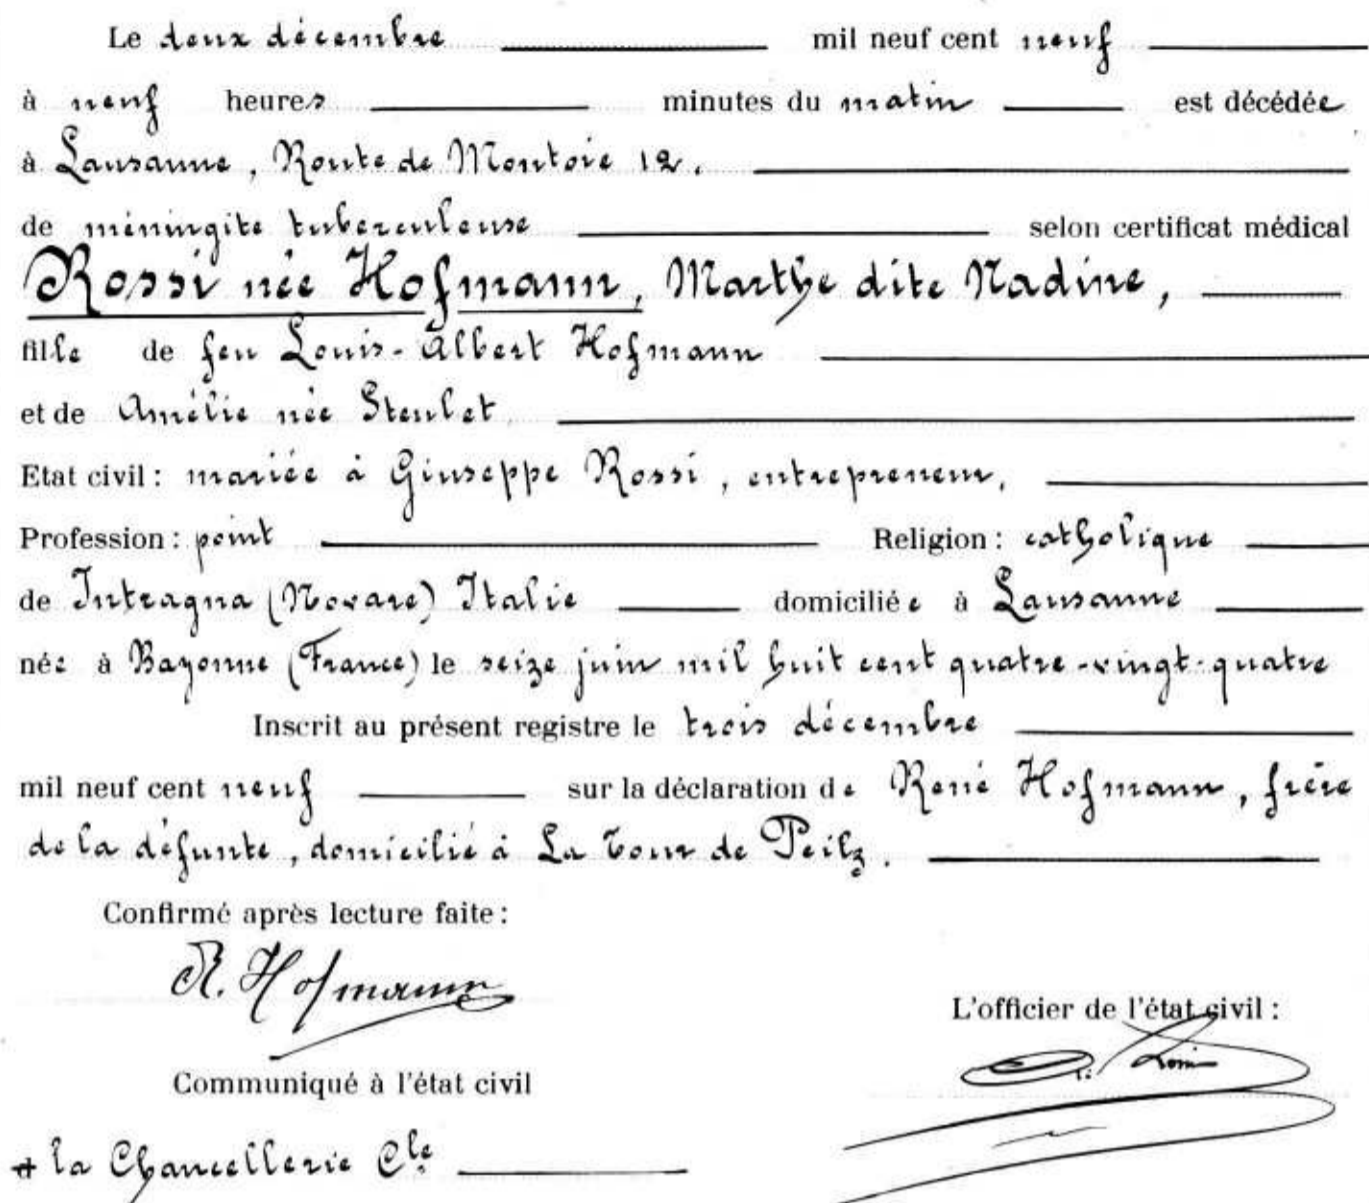 Le deux décembre mil neuf cent neuf
à neuf heures minutes du matin est décédée
à Lausanne, Route de Montoie 12.
de méningite tuberculeuse selon certificat médical
Rossi née Hofmann, Marthe dite Nadine,
fille de feu Louis-Albert Hofmann
et de Amélie née Steulet
Etat civil : mariée à Giuseppe Rossi, entrepreneur,
Profession : point Religion : catholique
de Intragna (Novare) Italie domiciliée à Lausanne
née à Bayonne (France) le seize juin mil huit cent quatre-vingt-quatre
Inscrit au présent registre le trois décembre
mil neuf cent neuf sur la déclaration de René Hofmann, frère
de la défunte, domicilié à La Tour de Peilz.
Confirmé après lecture faite :
R. Hofmann
L'officier de l'état civil :
Communiqué à l'état civil
à la Chancellerie Cle